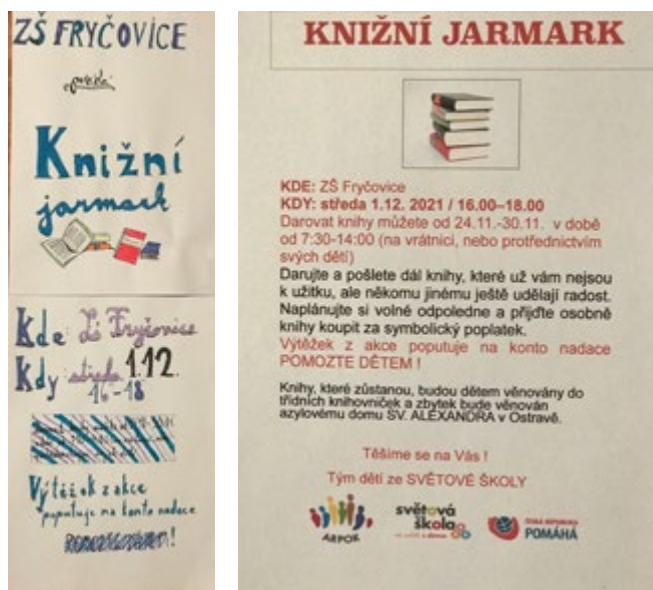 ZŠ FRYČOVICE
Knižní
jarmark
Kde ZŠ Fryčovice
Kdy středa 1.12.
16-18
Výtěžek z akce
poputuje na konto nadace
KNIŽNÍ JARMARK
KDE: ZŠ Fryčovice
KDY: středa 1.12. 2021 / 16.00–18.00
Darovat knihy můžete od 24.11.-30.11. v době
od 7:30-14:00 (na vrátnici, nebo protřednictvím
svých dětí)
Darujte a pošlete dál knihy, které už vám nejsou
k užitku, ale někomu jinému ještě udělají radost.
Naplánujte si volné odpoledne a přijďte osobně
knihy koupit za symbolický poplatek.
Výtěžek z akce poputuje na konto nadace
POMOZTE DĚTEM !
Knihy, které zůstanou, budou dětem věnovány do
třídních knihovniček a zbytek bude věnován
azylovému domu SV. ALEXANDRA v Ostravě.
Těšíme se na Vás !
Tým dětí ze SVĚTOVÉ ŠKOLY
ARPOK
světová
škola
ČESKÁ REPUBLIKA
POMÁHÁ